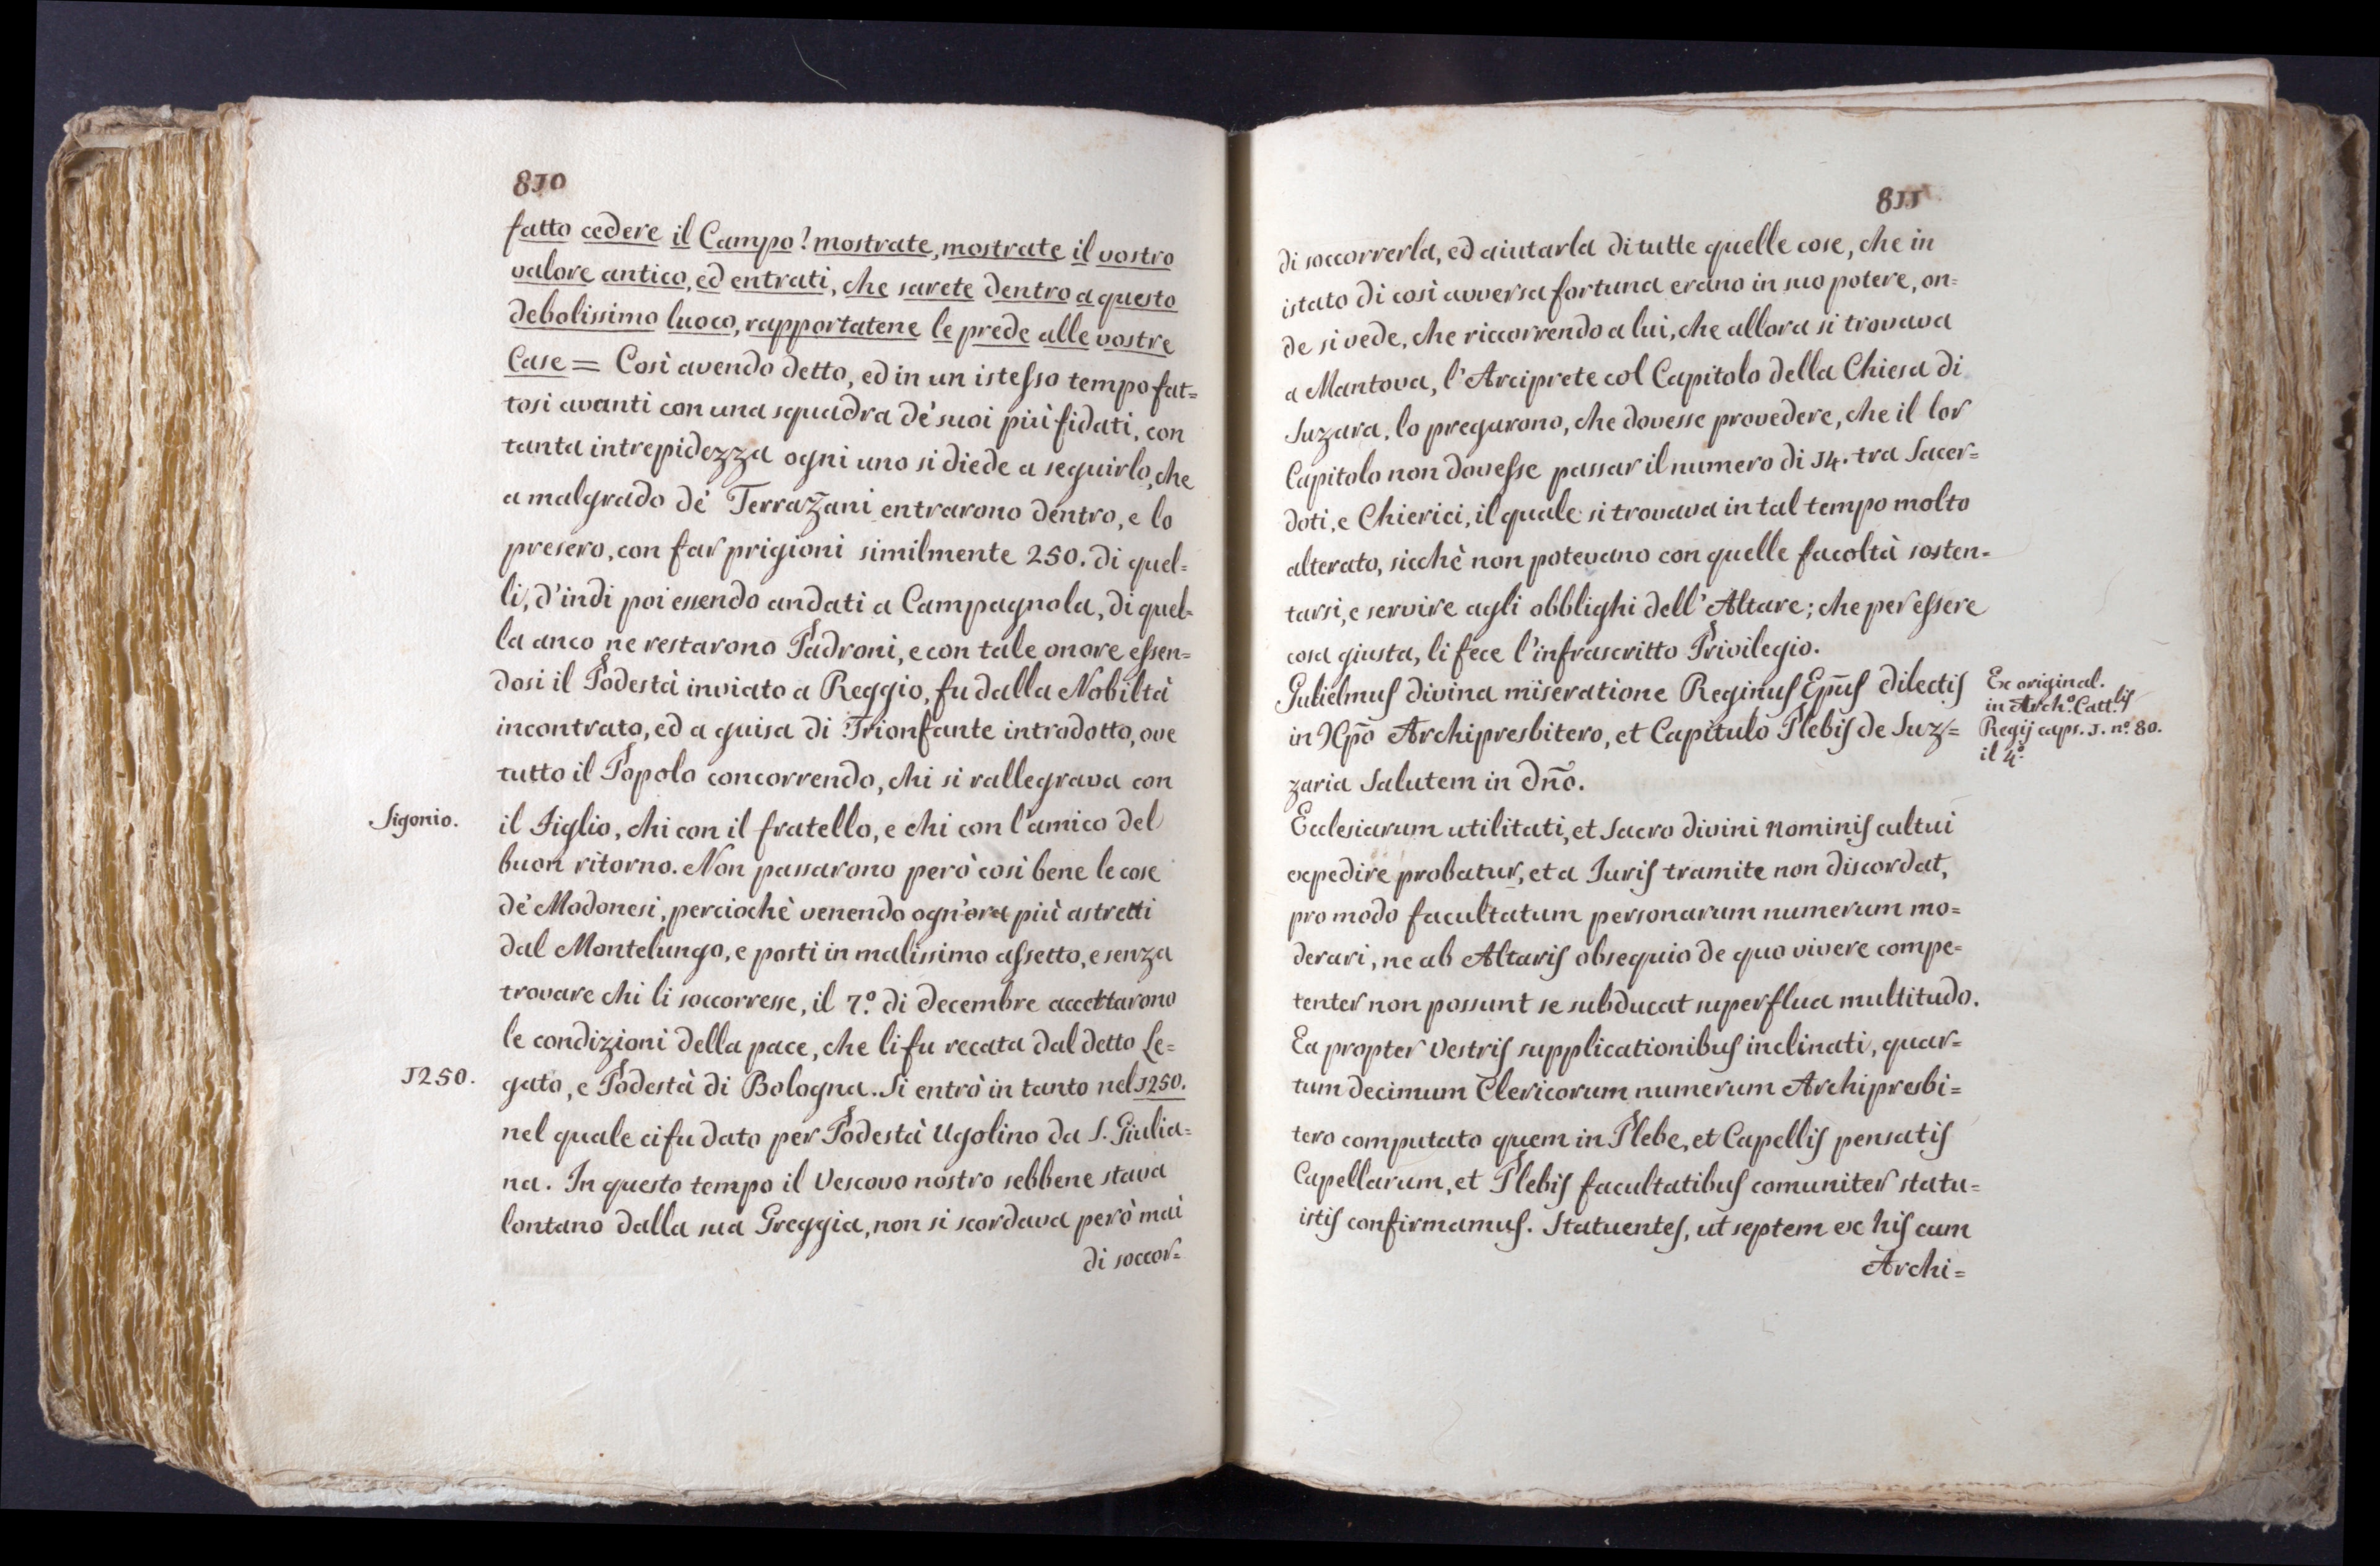 810
fatto cedere il Campo! mostrate, mostrate il vostro
valore antico, ed entrati, che sarete dentro a questo
debolissimo luoco, rapportatene le prede alle vostre
Case = Così avendo detto, ed in un istesso tempo fat=
tosi avanti con una squadra de' suoi più fidati, con
tanta intrepidezza ogni uno si diede a seguirlo, che
a malgrado de' Terrazani entrarono dentro, e lo
presero, con far prigioni similmente 250. di quel=
li, d'indi poi essendo andati a Campagnola, di quel=
la anco ne restarono Padroni, e con tale onore essen=
dosi il Podestà inviato a Reggio, fu dalla Nobiltà
incontrato, ed a guisa di Trionfante introdotto, ove
tutto il Popolo concorrendo, chi si rallegrava con
Sigonio.
il Figlio, chi con il fratello, e chi con l'amico del
buon ritorno. Non passarono però così bene le cose
de' Modonesi, perciochè venendo ogn'ora più astretti
dal Montelungo, e posti in malissimo assetto, e senza
trovare chi li soccorresse, il 7.º di decembre accettarono
le condizioni della pace, che li fu recata dal detto Le=
1250.
gato, e Podestà di Bologna. Si entrò in tanto nel 1250.
nel quale ci fu dato per Podestà Ugolino da S. Giulia=
na. In questo tempo il Vescovo nostro sebbene stava
lontano dalla sua Greggia, non si scordava però mai
di soccor=
811
di soccorrerla, ed aiutarla di tutte quelle cose, che in
istato di così avversa fortuna erano in suo potere, on=
de si vede, che riccorrendo a lui, che allora si trovava
a Mantova, l'Arciprete col Capitolo della Chiesa di
Suzara, lo pregarono, che dovesse provedere, che il lor
Capitolo non dovesse passar il numero di 14. tra Sacer=
doti, e Chierici, il quale si trovava in tal tempo molto
alterato, sicchè non potevano con quelle facoltà sosten=
tarsi, e servire agli obblighi dell'Altare; che per essere
cosa giusta, li fece l'infrascritto Privilegio.
Gulielmus divina miseratione Reginus Epūs dilectis
in Xp̄o Archipresbitero, et Capitulo Plebis de Suz=
zaria Salutem in Dn̄o.
Ex original.
in Arch.º Catt.lis
Regij caps. 1. nº. 80.
il 4.º
Ecclesiarum utilitati, et Sacro divini nominis cultui
expedire probatur, et a Iuris tramite non discordat,
pro modo facultatum personarum numerum mo=
derari, ne ab Altaris obsequio de quo vivere compe=
tenter non possunt se subducat superflua multitudo.
Ea propter vestris supplicationibus inclinati, quar=
tum decimum Clericorum numerum Archipresbi=
tero computato quem in Plebe, et Capellis pensatis
Capellarum, et Plebis facultatibus comuniter statu=
istis confirmamus. Statuentes, ut septem ex his cum
Archi=